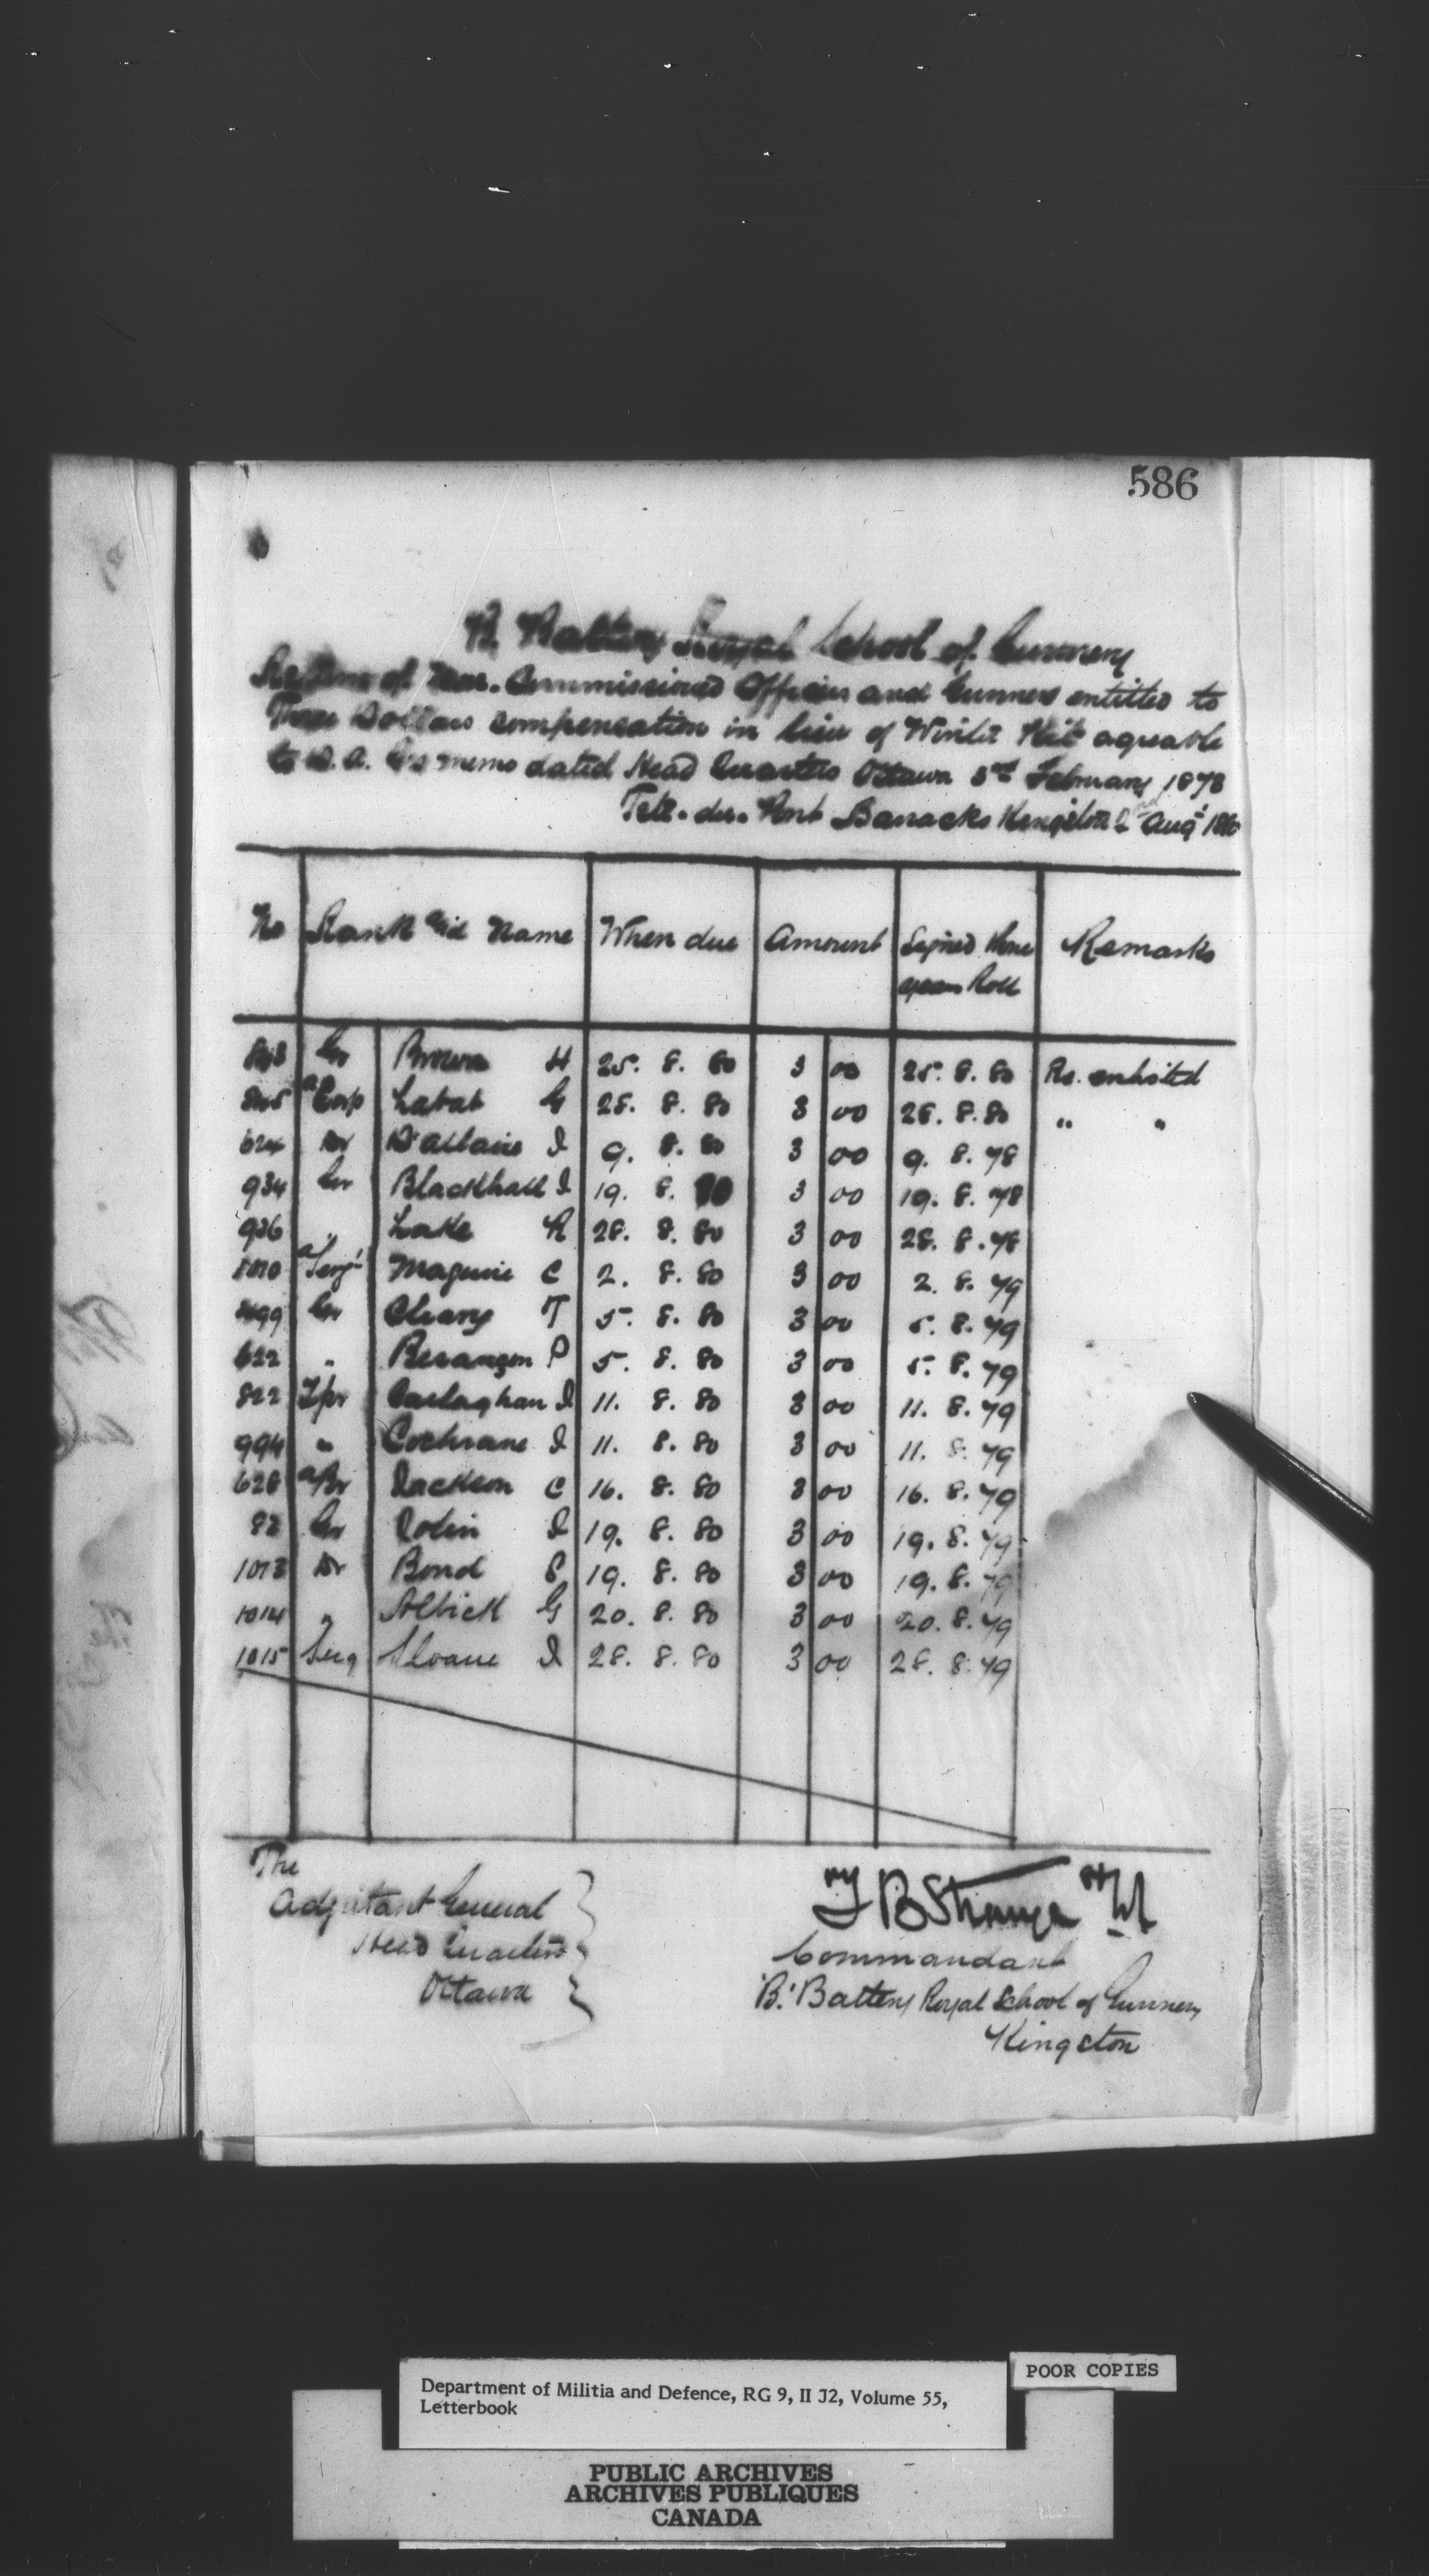 586
B. Battery Royal School of Gunnery
Return of Non. Commissioned Officers and Gunners entitled to
Three Dollars compensation in lieu of Winter Kit agreable
to D. A. G's memo dated Head Quarters Ottawa 3rd February 1878
Tete. du. Pont Barracks Kingston 2nd Augt 1880
No Rank and Name When due Amount Signed three years Roll Remarks
Gr Brown H 25. 8. 80 3 00 25. 8. 80 Re. enlisted
a Corp Labat G 28. 8. 80 3 00 28. 8. 80 " "
624 Dr Dallaire J 9. 8. 80 3 00 9. 8. 78
934 Gr Blackhall J 19. 8. 80 3 00 19. 8. 78
936 " Lake R 28. 8. 80 3 00 28. 8. 78
1010 a Sergt Maguire C 2. 8. 80 3 00 2. 8. 79
Gr Cleary T 5. 8. 80 3 00 5. 8. 79
622 " Besançon P 5. 8. 80 3 00 5. 8. 79
822 Tpr Carlaghan J 11. 8. 80 3 00 11. 8. 79
994 " Cochrane J 11. 8. 80 3 00 11. 8. 79
628 a Br Jackson C 16. 8. 80 3 00 16. 8. 79
82 Gr Colin J 19. 8. 80 3 00 19. 8. 79
1013 Dr Bond P 19. 8. 80 3 00 19. 8. 79
1014 " Albick G 20. 8. 80 3 00 20. 8. 79
1015 Serg Sloane J 28. 8. 80 3 00 28. 8. 79
The
Adjutant General
Head Quarters
Ottawa
T B Strange
Commandant
'B.' Battery Royal School of Gunnery
Kingston
POOR COPIES
Department of Militia and Defence, RG 9, II J2, Volume 55,
Letterbook
PUBLIC ARCHIVES
ARCHIVES PUBLIQUES
CANADA